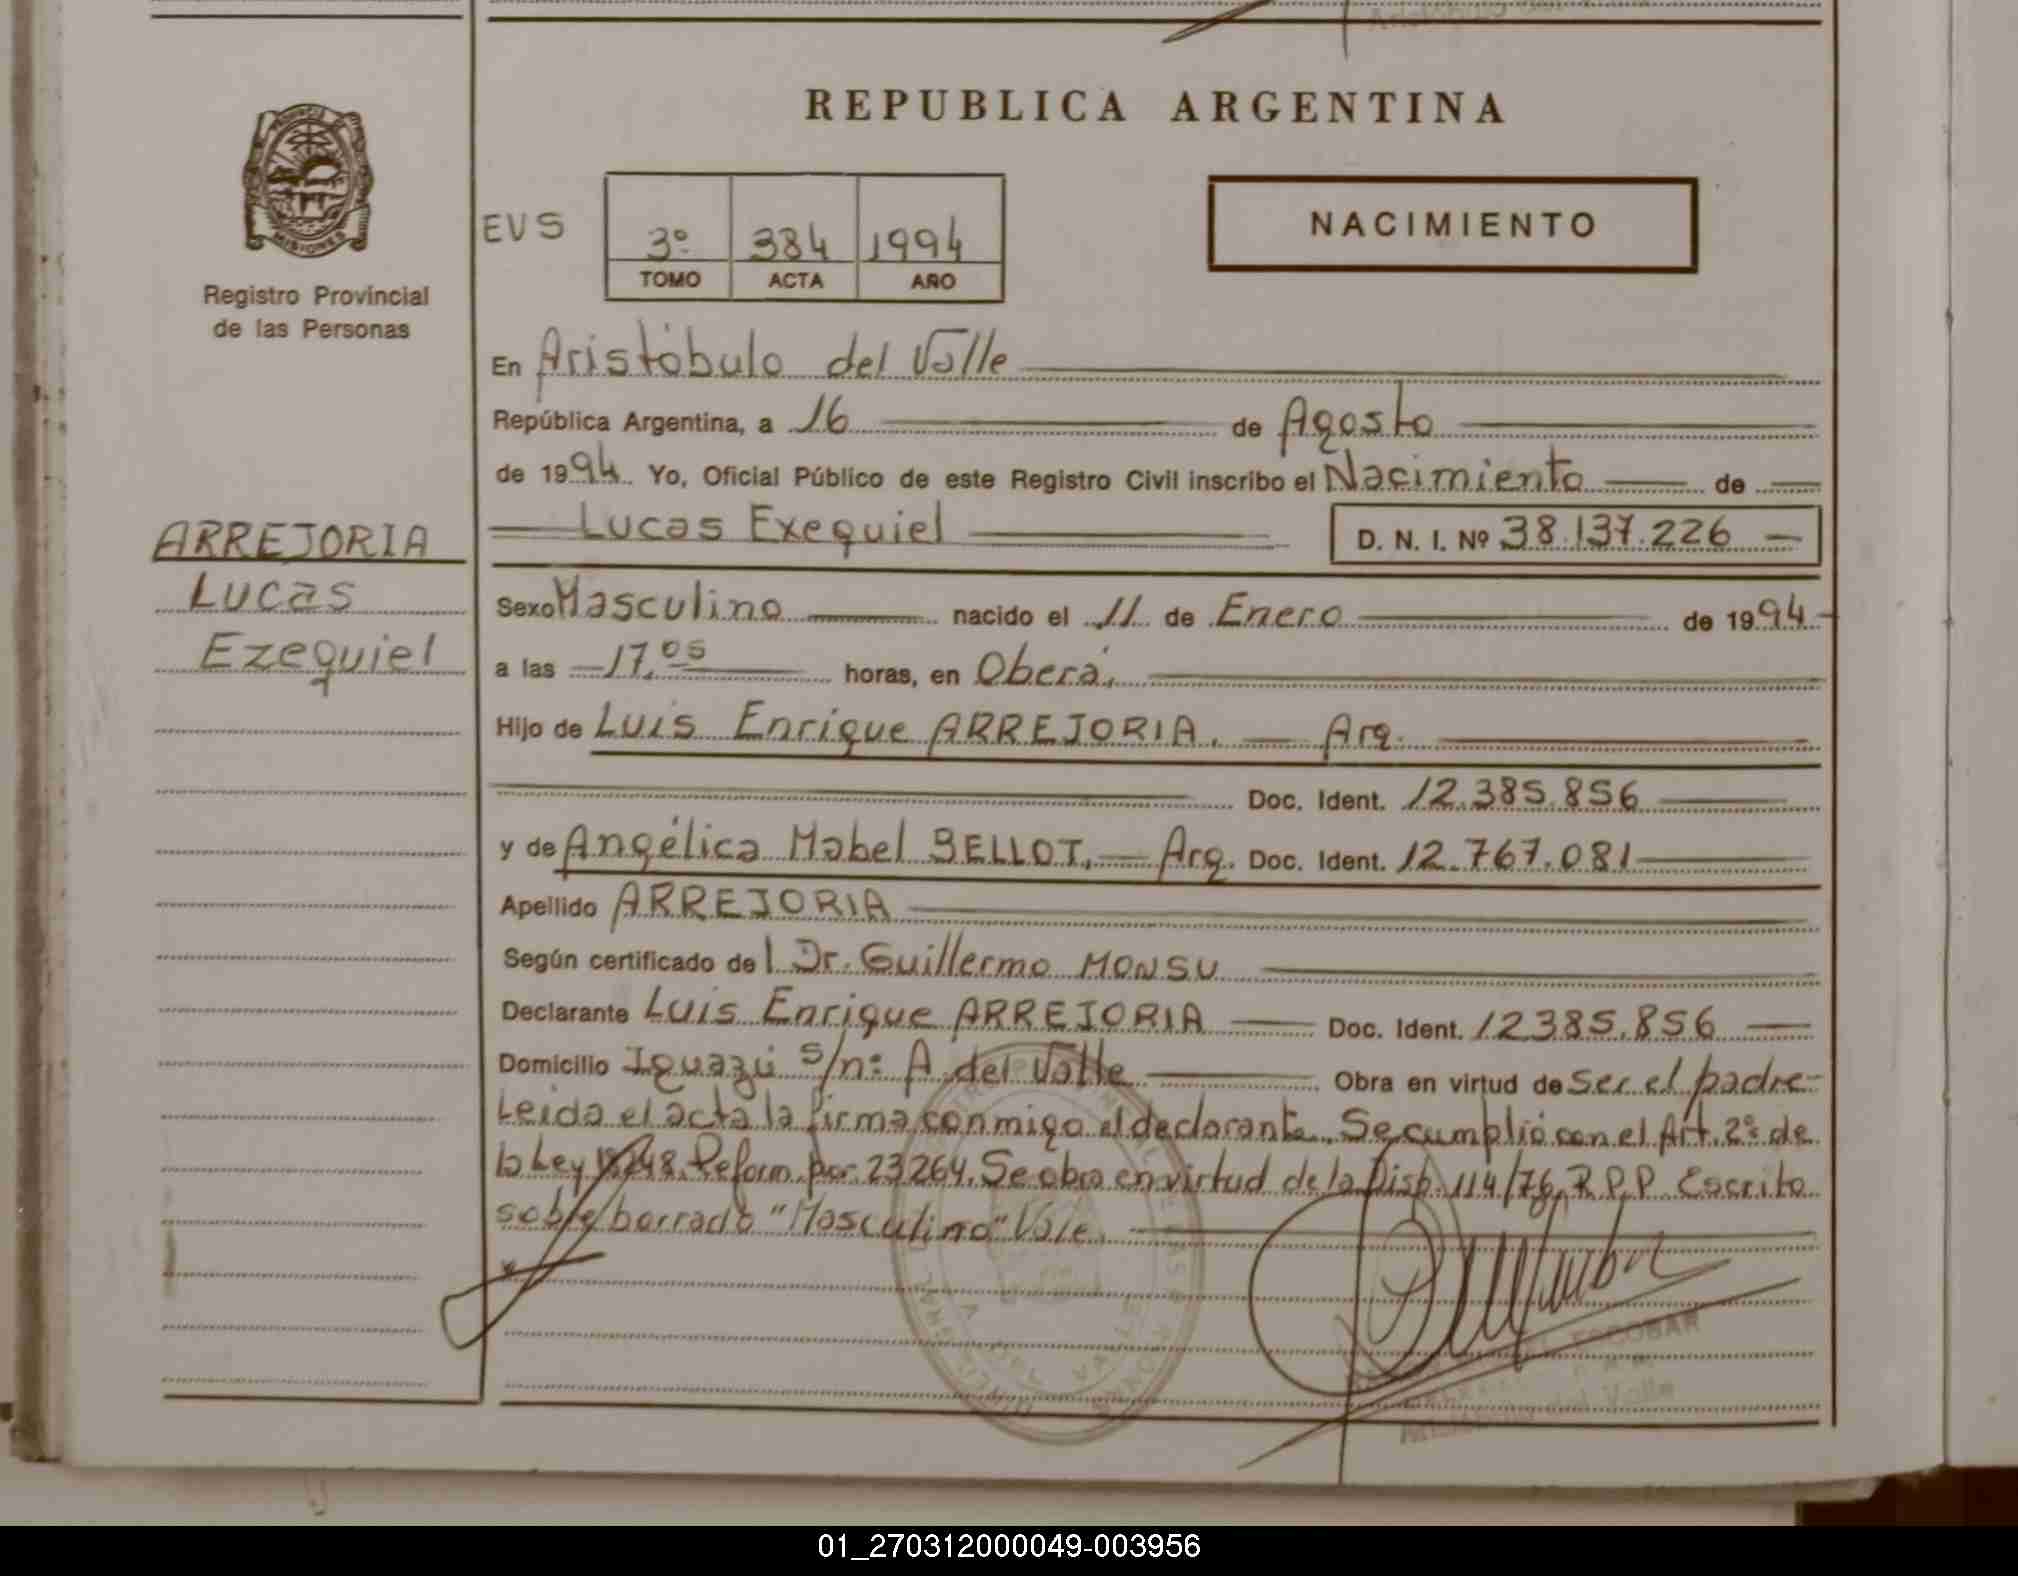 REPUBLICA ARGENTINA
MISIONES
Registro Provincial
de las Personas
EVS
3º 384 1994
TOMO ACTA AÑO
NACIMIENTO
En Aristóbulo del Valle
República Argentina, a 16 de Agosto
de 1994 Yo, Oficial Público de este Registro Civil inscribo el Nacimiento de
Lucas Exequiel D. N. I. Nº 38.137.226
ARREJORIA
Lucas
Ezequiel
Sexo Masculino nacido el 11 de Enero de 1994
a las 17.05 horas, en Oberá.
Hijo de Luis Enrique ARREJORIA. Arg.
Doc. Ident. 12.385.856
y de Angélica Mabel BELLOT. Arg. Doc. Ident. 12.767.081
Apellido ARREJORIA
Según certificado del Dr. Guillermo MONSU
Declarante Luis Enrique ARREJORIA Doc. Ident. 12385.856
Domicilio Iguazú s/n: A del Valle Obra en virtud de ser el padre
Leida el acta la firma conmigo el declarante. Se cumplió con el Art. 2º de
la Ley 18248. Reform. por 23264. Se obra en virtud de la Disp. 114/76, R.P.P. Escrito
sobre borrado "Masculino" Vale.
ESCOBAR
Aristóbulo del Valle
01_270312000049-003956